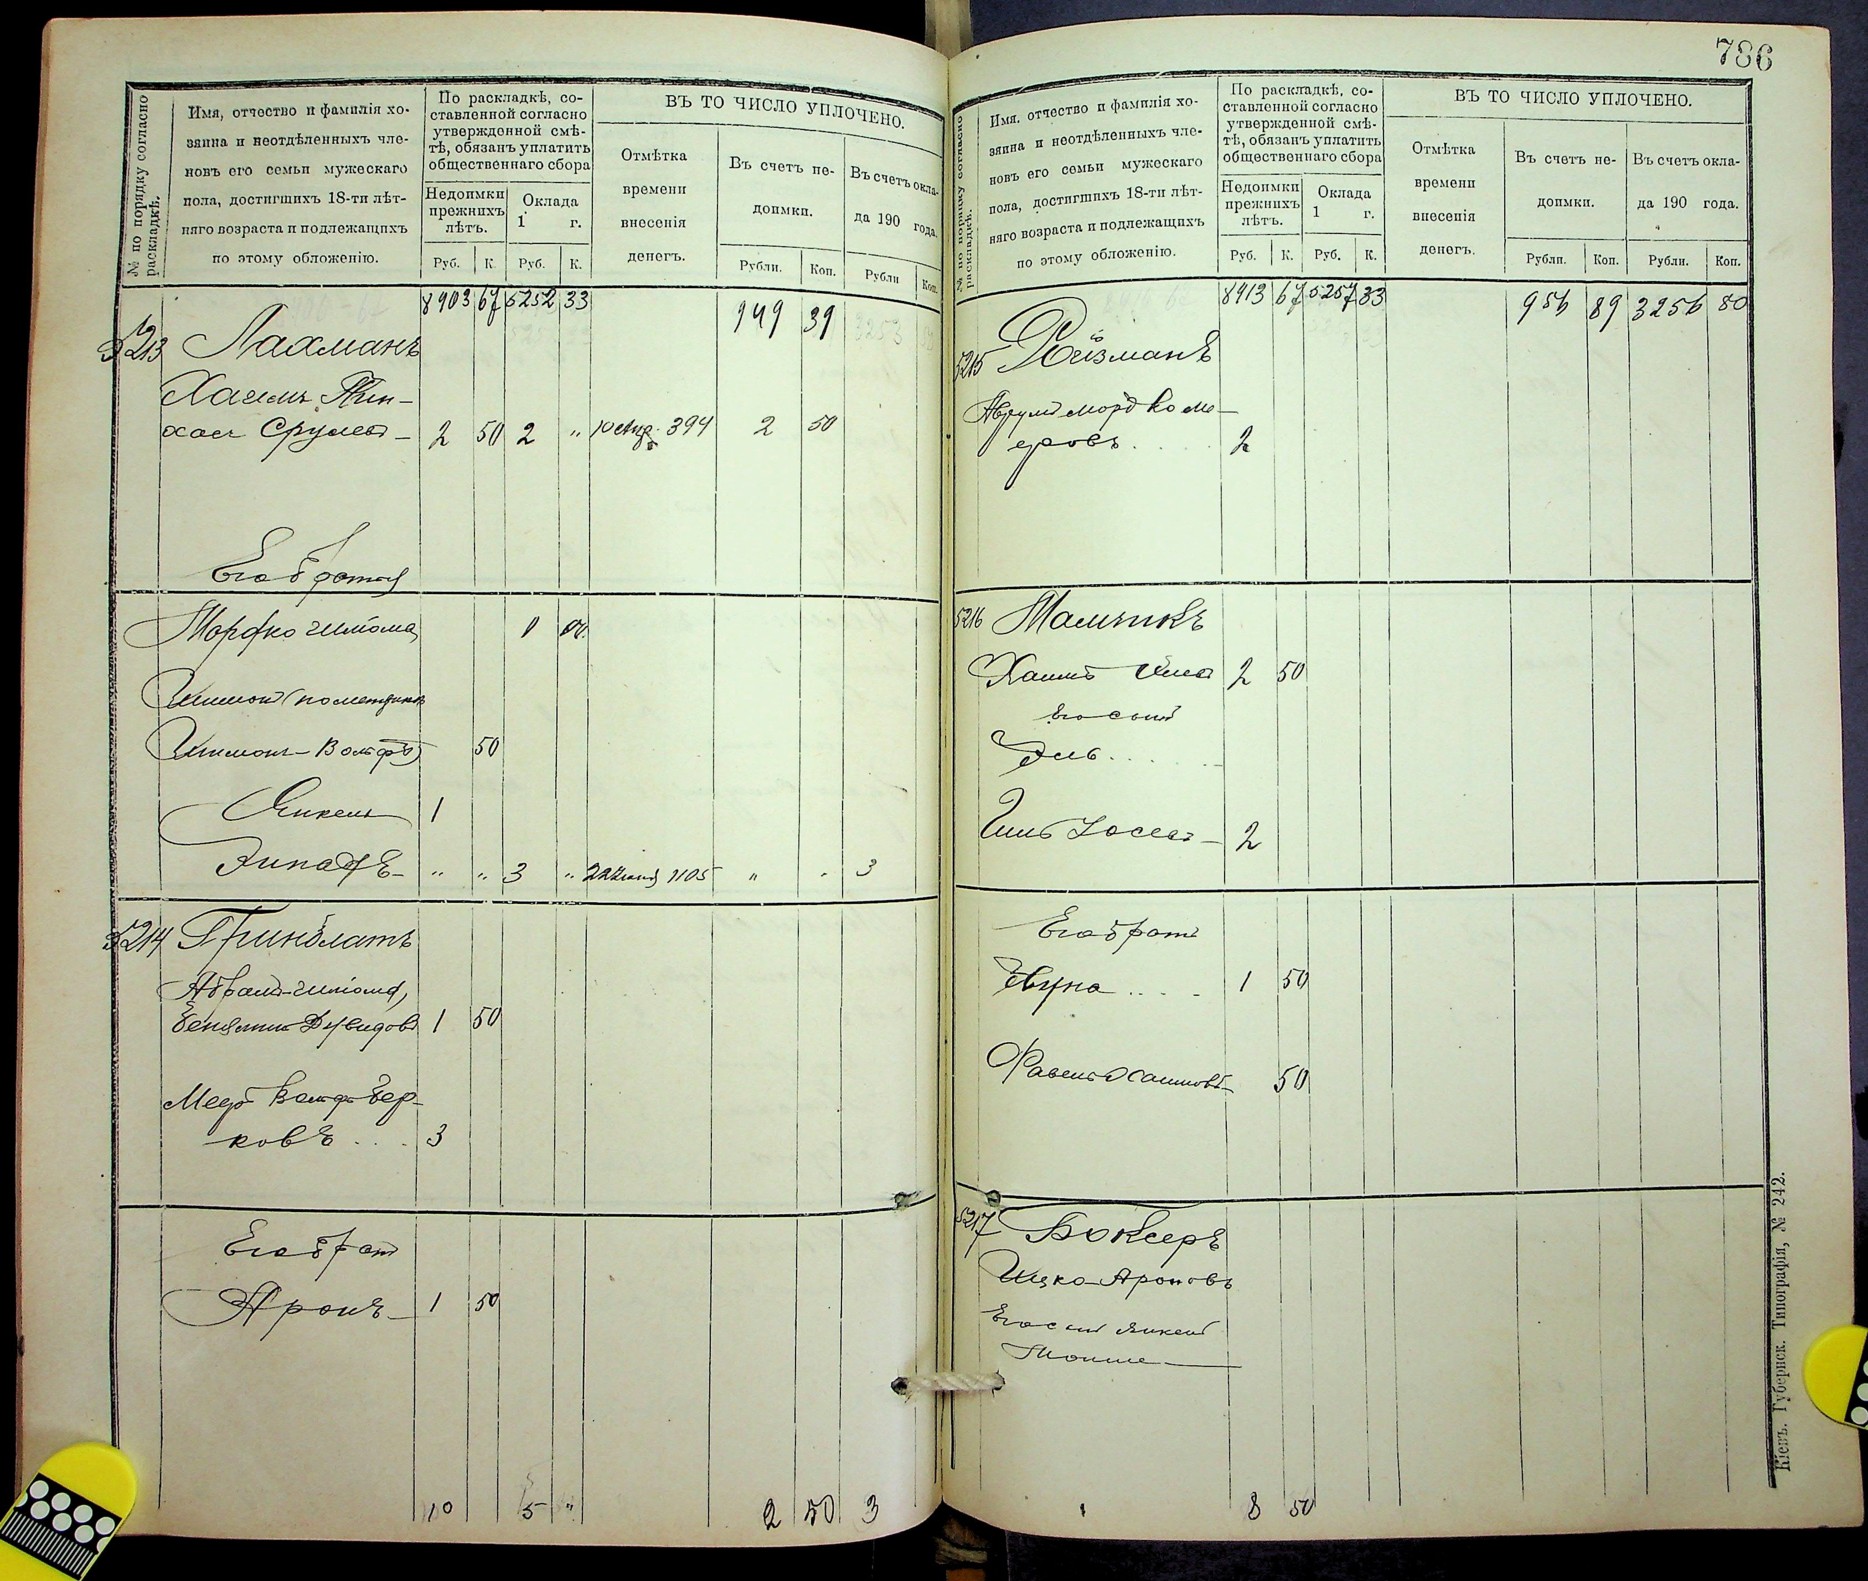 786
№ по порядку согласно раскладкѣ.
Имя, отчество и фамилія хо-
зяина и неотдѣленныхъ чле-
новъ его семьи мужескаго
пола, достигшихъ 18-ти лѣт-
няго возраста и подлежащихъ
по этому обложенію.
По раскладкѣ, со-
ставленной согласно
утвержденной смѣ-
тѣ, обязанъ уплатить
общественнаго сбора
Недоимки
прежнихъ
лѣтъ.
Оклада
1 г.
Руб. К. Руб. К.
ВЪ ТО ЧИСЛО УПЛОЧЕНО.
Отмѣтка
времени
внесенія
денегъ.
Въ счетъ не-
доимки.
Въ счетъ окла-
да 190 года.
Рубли. Коп. Рубли Коп.
8903 67 5252 33 949 39
5213 Лахманъ
Хаимъ Пин-
хас Срулев- 2 50 2 " 10 Апр. 394 2 50
Его братья
Мордко Шлиома 1
Шимон
Шимон-Вольфъ 50
Янкель 1
" " 3 " 22 1105 " " 3
5214 Гринблатъ
Абрамъ-Шліома,
Беньямин Дувидов 1 50
Меер Вольф Бер-
ковъ . . . 3
Его брат
Аронъ 1 50
10 5 " 2 50 3
№ по порядку согласно раскладкѣ.
Имя, отчество и фамилія хо-
зяина и неотдѣленныхъ чле-
новъ его семьи мужескаго
пола, достигшихъ 18-ти лѣт-
няго возраста и подлежащихъ
по этому обложенію.
По раскладкѣ, со-
ставленной согласно
утвержденной смѣ-
тѣ, обязанъ уплатить
общественнаго сбора
Недоимки
прежнихъ
лѣтъ.
Оклада
1 г.
Руб. К. Руб. К.
ВЪ ТО ЧИСЛО УПЛОЧЕНО.
Отмѣтка
времени
внесенія
денегъ.
Въ счетъ не-
доимки.
Въ счетъ окла-
да 190 года.
Рубли. Коп. Рубли. Коп.
8913 67 5257 33 956 89 3256 80
5215 Ройзманъ
Аврумъ Мордко Ме-
еровъ . . . . 2
5216
Хаимъ 2 50
Его сынъ
. . . . .
2
Его братъ
. . . - 1 50
50
5217 Боксеръ
Ицко Ароновъ
Его сын Янкель
8 50
Кіевъ. Губернск. Типографія, № 242.